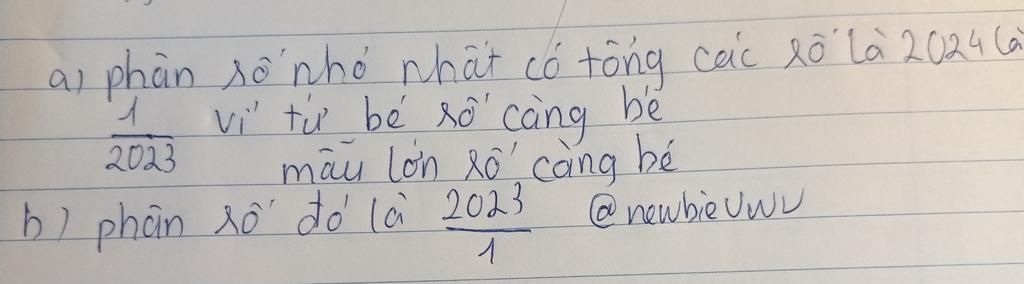 a) phân số nhỏ nhất có tổng các số là 2024 là
1/2023 vì tử bé số càng bé
mẫu lớn số càng bé
b) phân số đó là 2023/1 @newbieUwU